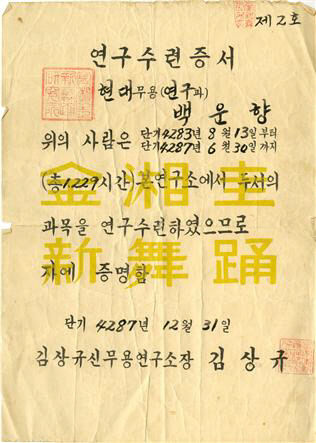 제2호
연구수련증서
현대무용(연구과)
백운향
위의 사람은 단기4283년 8월 13일 부터
단기4287년 6월 30일 까지
(총1229시간) 본연구소에서 두서의
과목을 연구수련하였으므로
자에 증명함
金湘圭
新舞踊
단기 4287년 12월 31일
김상규신무용연구소장 김상규